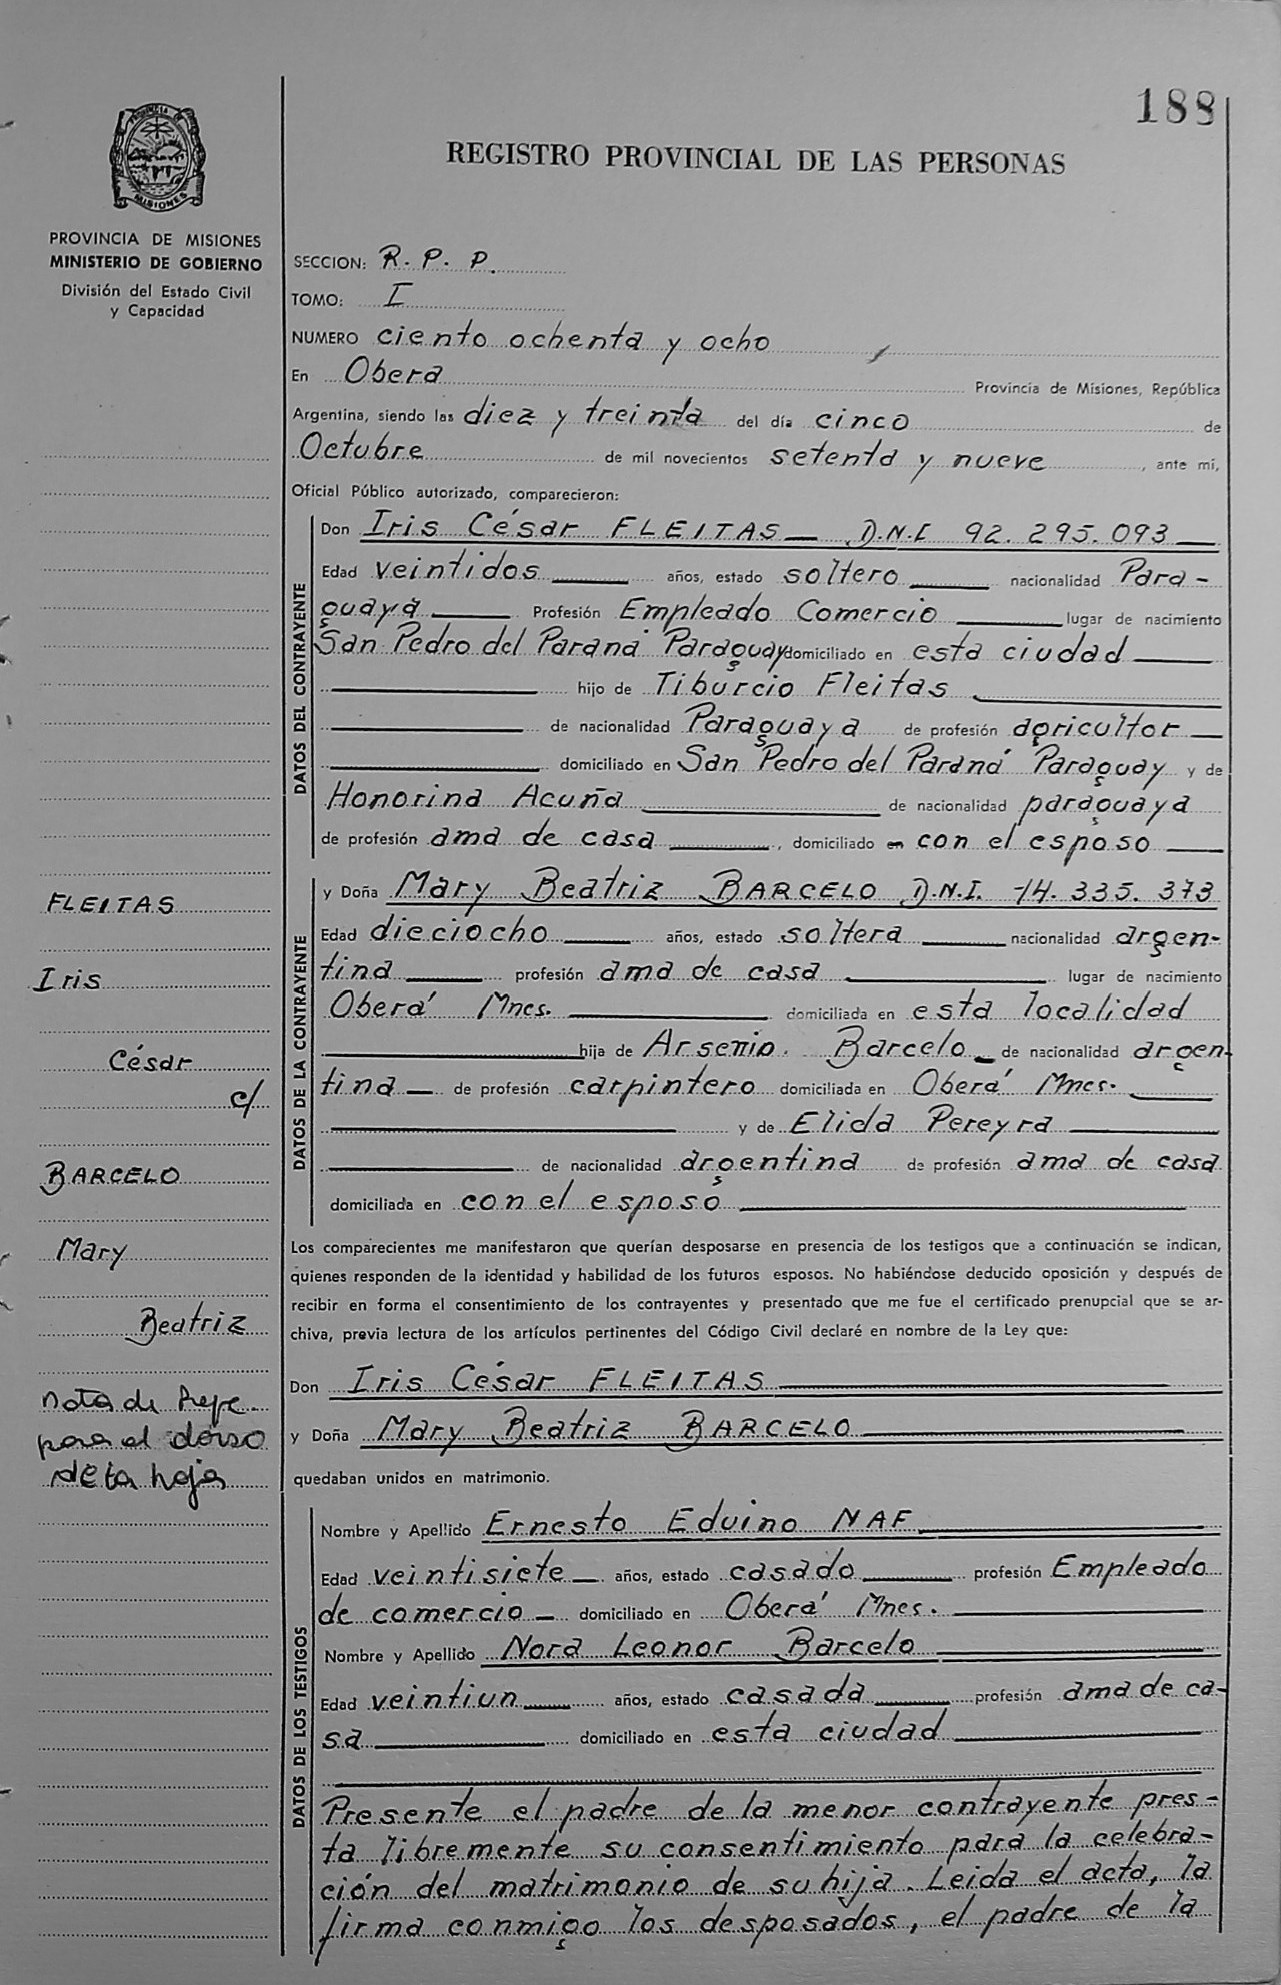 188
REGISTRO PROVINCIAL DE LAS PERSONAS
PROVINCIA DE
MISIONES
PROVINCIA DE MISIONES
MINISTERIO DE GOBIERNO
División del Estado Civil
y Capacidad
SECCION: R. P. P.
TOMO: I
NUMERO ciento ochenta y ocho
En Obera Provincia de Misiones, República
Argentina, siendo las diez y treinta del día cinco de
Octubre de mil novecientos setenta y nueve, ante mi,
Oficial Público autorizado, comparecieron:
DATOS DEL CONTRAYENTE
Don Iris César FLEITAS D.N.I 92.295.093
Edad veintidos años, estado soltero nacionalidad Para-
guaya Profesión Empleado Comercio lugar de nacimiento
San Pedro del Paraná Paraguay domiciliado en esta ciudad
hijo de Tiburcio Fleitas
de nacionalidad Paraguaya de profesión agricultor
domiciliado en San Pedro del Paraná Paraguay y de
Honorina Acuña de nacionalidad paraguaya
de profesión ama de casa, domiciliado en con el esposo
DATOS DE LA CONTRAYENTE
y Doña Mary Beatriz BARCELO D.N.I. 14.335.373
Edad dieciocho años, estado soltera nacionalidad argen-
tina profesión ama de casa lugar de nacimiento
Oberá Mnes. domiciliada en esta localidad
hija de Arsenio Barcelo de nacionalidad argen-
tina de profesión carpintero domiciliada en Oberá Mnes.
y de Elida Pereyra
de nacionalidad argentina de profesión ama de casa
domiciliada en con el esposo
Los comparecientes me manifestaron que querían desposarse en presencia de los testigos que a continuación se indican,
quienes responden de la identidad y habilidad de los futuros esposos. No habiéndose deducido oposición y después de
recibir en forma el consentimiento de los contrayentes y presentado que me fue el certificado prenupcial que se ar-
chiva, previa lectura de los artículos pertinentes del Código Civil declaré en nombre de la Ley que:
Don Iris César FLEITAS
y Doña Mary Beatriz BARCELO
quedaban unidos en matrimonio.
DATOS DE LOS TESTIGOS
Nombre y Apellido Ernesto Eduino NAF
Edad veintisiete años, estado casado profesión Empleado
de comercio domiciliado en Oberá Mnes.
Nombre y Apellido Nora Leonor Barcelo
Edad veintiun años, estado casada profesión ama de ca-
sa domiciliado en esta ciudad
Presente el padre de la menor contrayente pres-
ta libremente su consentimiento para la celebra-
ción del matrimonio de su hija. Leida el acta, la
firma conmigo los desposados, el padre de la
FLEITAS
Iris
César
c/
BARCELO
Mary
Beatriz
nota de Refe.
para al dorso
de la hoja